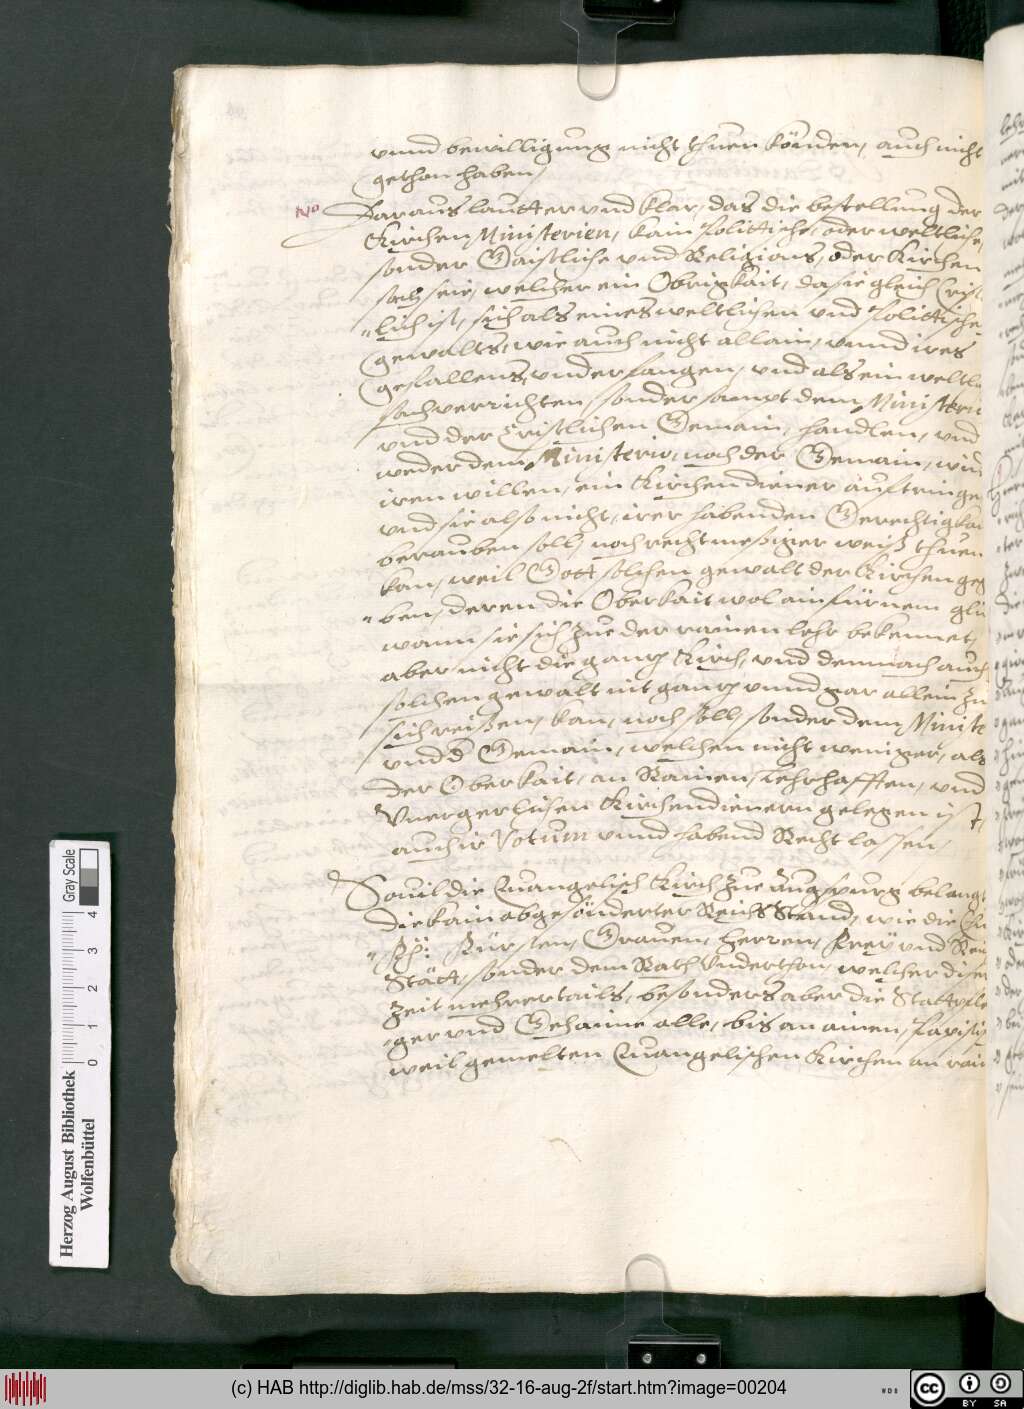 vnnd bewilligung nicht thuen könden, auch nicht
gethon haben,
No
Daraus lautter vnd klar, das die bestellung der
Kirchen Ministerien, kain Polittische, oder weltliche,
sonder Gaistliche vnd Religions, oder Kirchen
sach seie, welcher ein Obrigkait, da sie gleich Crist
lich ist, sich als eines weltlichen vnd Polittische
gewalts, wie auch nicht allain, vnnd ires
gefallens, vnderfangen, vnd als ein weltli
sach verrichten, sonder sampt dem Ministeri
vnd der Cristlichen Gemain, handlen, vnd
weder dem Ministerio, noch der Gemain, wid
iren willen, ein Kirchendiener auftringe
vnd sie also nicht, irer habenden Gerechtigkai
berauben soll, noch rechtmessiger weiß thuen
kan, weil Gott solchen gewalt der Kirchen geg
ben, deren die Oberkait wol ain fürnem gli
wann sie sich zue der rainen lehr bekennet,
aber nicht die gantz Kirch, vnd demnach auch
solchen gewalt nit gantz vnnd gar allein zu
sich reissen, kan, noch soll, sonder dem Ministe
vnd d Gemain, welchen nicht weniger, als
der Oberkait, an Rainen, Lehrhafften, vnd
Vnergerlichen Kirchendienern gelegen ist,
auch ir Votum vnnd habend Recht lassen,
Souil die Euangelisch Kirch zue Augspurg belangt
die kain abgesönderter Reichs Stand, wie die Chu
Fürsten, Grauen, Herren, Frey vnd Rei
Stätt, sonder dem Rath Vnderthon, welcher diser
Zeit mehrertails, besonders aber die Stattpfle
ger vnd Gehaime alle, bis an ainen, Papisti
weil gemelten Euangelischen Kirchen an rai
Herzog August Bibliothek
Wolfenbüttel
Gray Scale
0 1 2 3 4
(c) HAB http://diglib.hab.de/mss/32-16-aug-2f/start.htm?image=00204
WDB
cc
BY SA